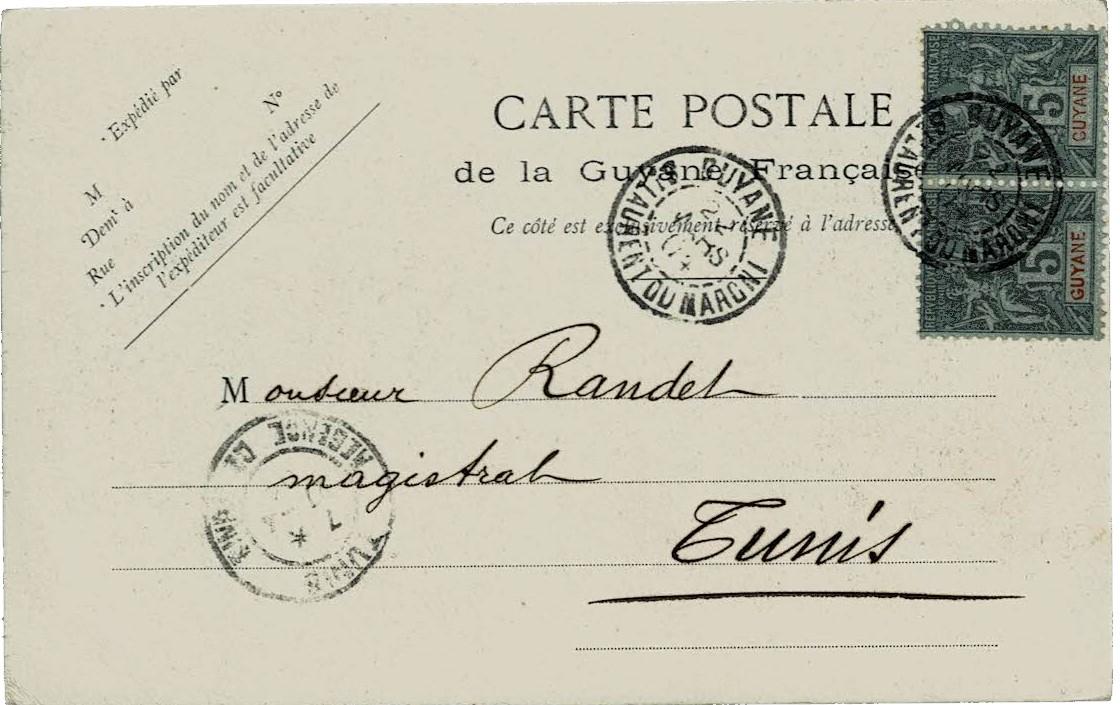 Expédié par
M
Nº
Demt à
Rue
L'inscription du nom et de l'adresse de
l'expéditeur est facultative
CARTE POSTALE
de la Guyane Française
Ce côté est exclusivement réservé à l'adresse
5 GUYANE
5 GUYANE
GUYANE
ST LAURENT DU MARONI
GUYANE
ST LAURENT DU MARONI
Monsieur Randet
magistrat
Tunis
TUNIS
REGENCE DE